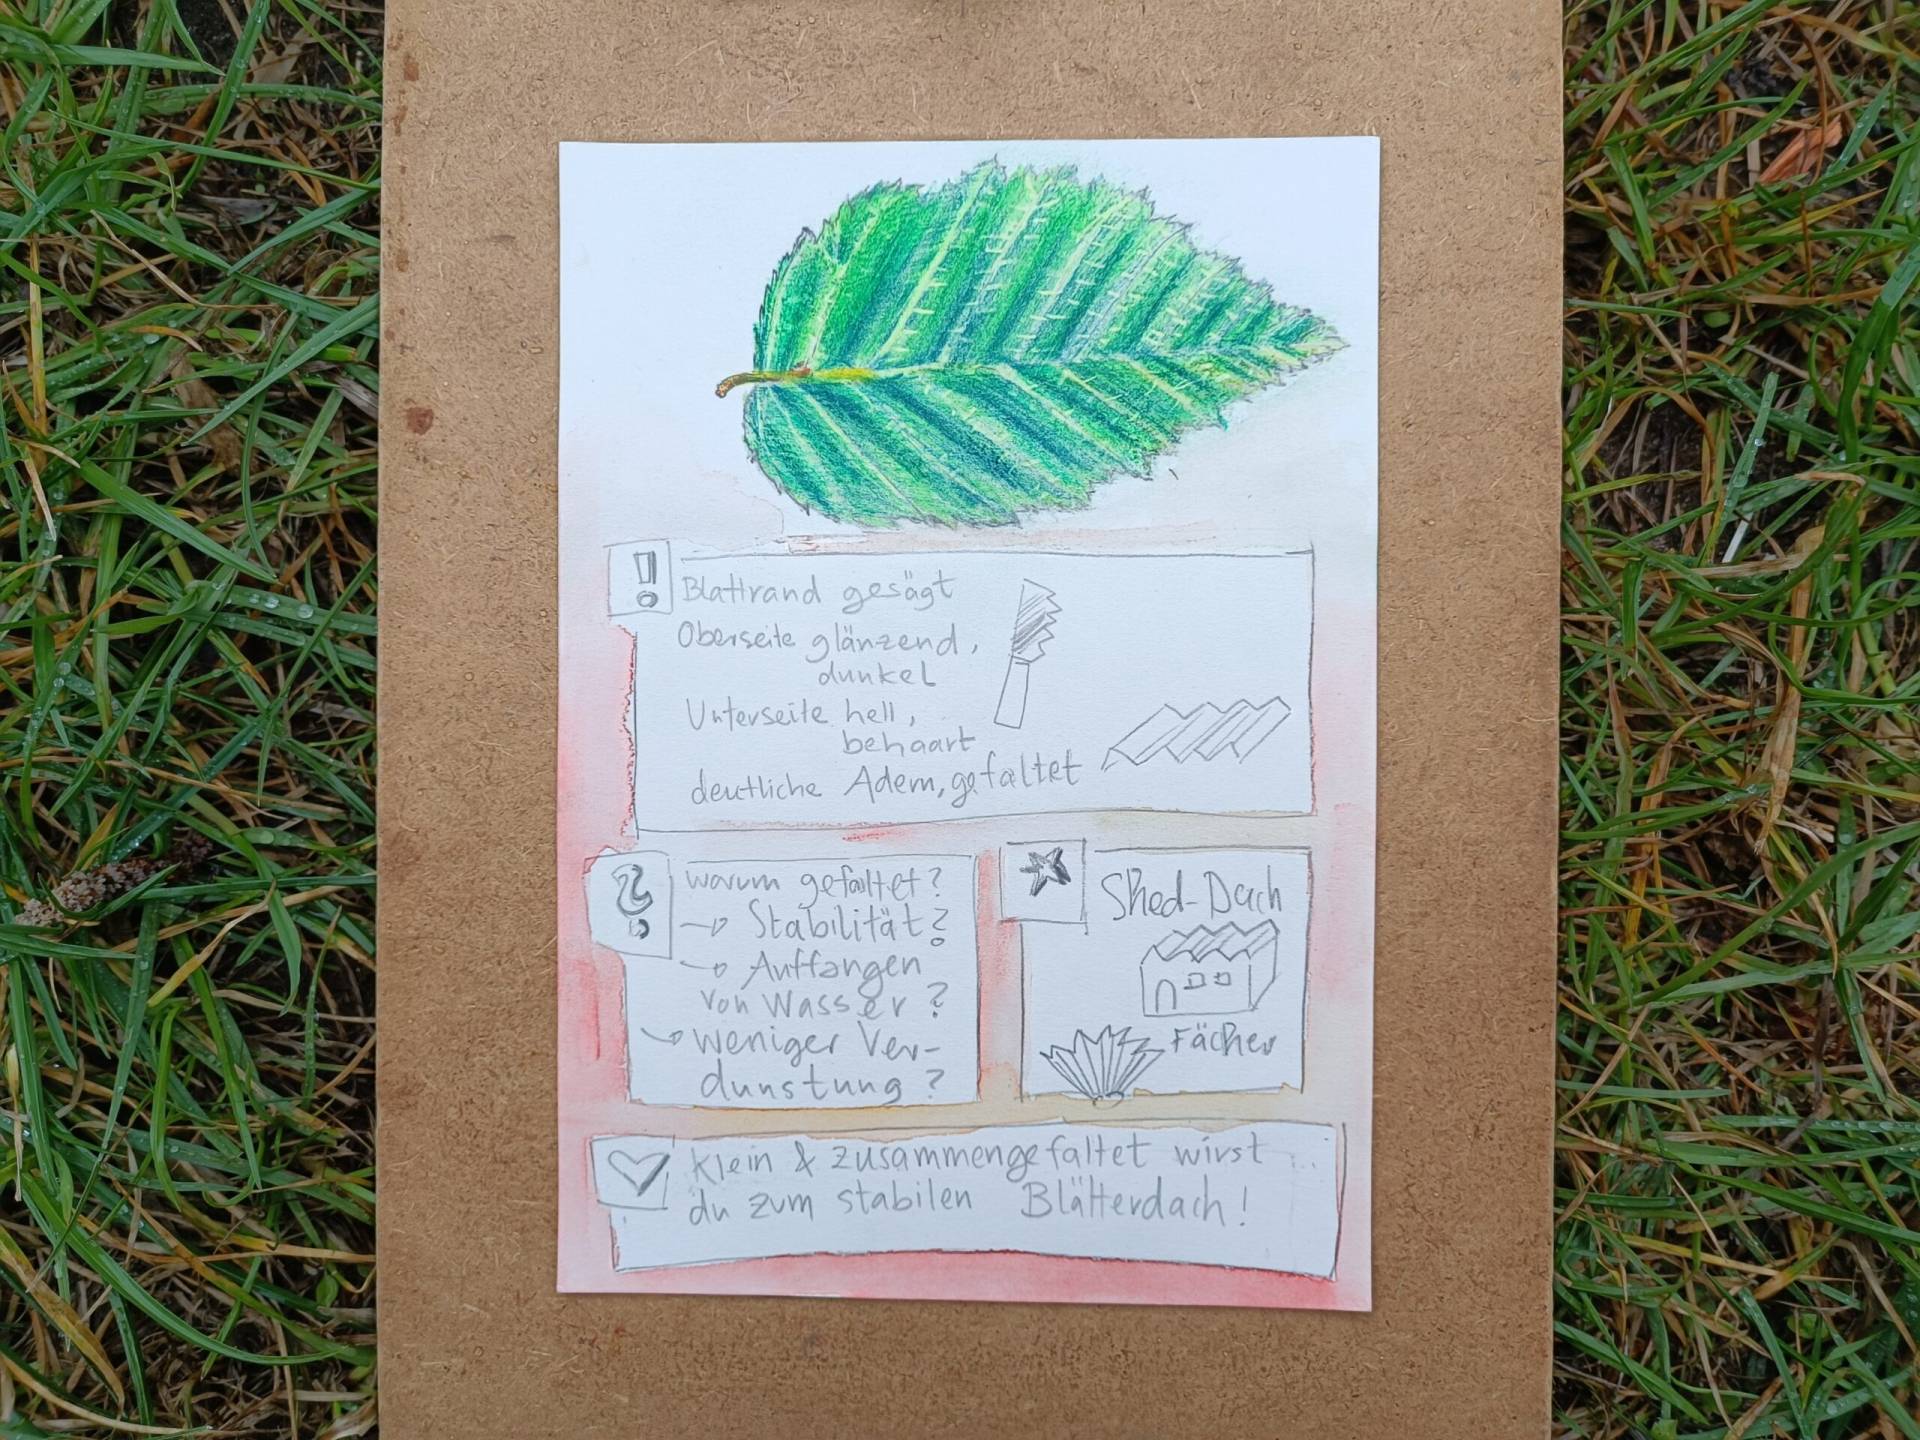 !
Blattrand gesägt
Oberseite glänzend,
dunkel
Unterseite hell,
behaart
deutliche Adern, gefaltet
?
warum gefaltet?
→ Stabilität?
→ Auffangen
von Wasser?
→ weniger Ver-
dunstung?
Shed-Dach
Fächer
Klein & zusammengefaltet wirst
du zum stabilen Blätterdach!